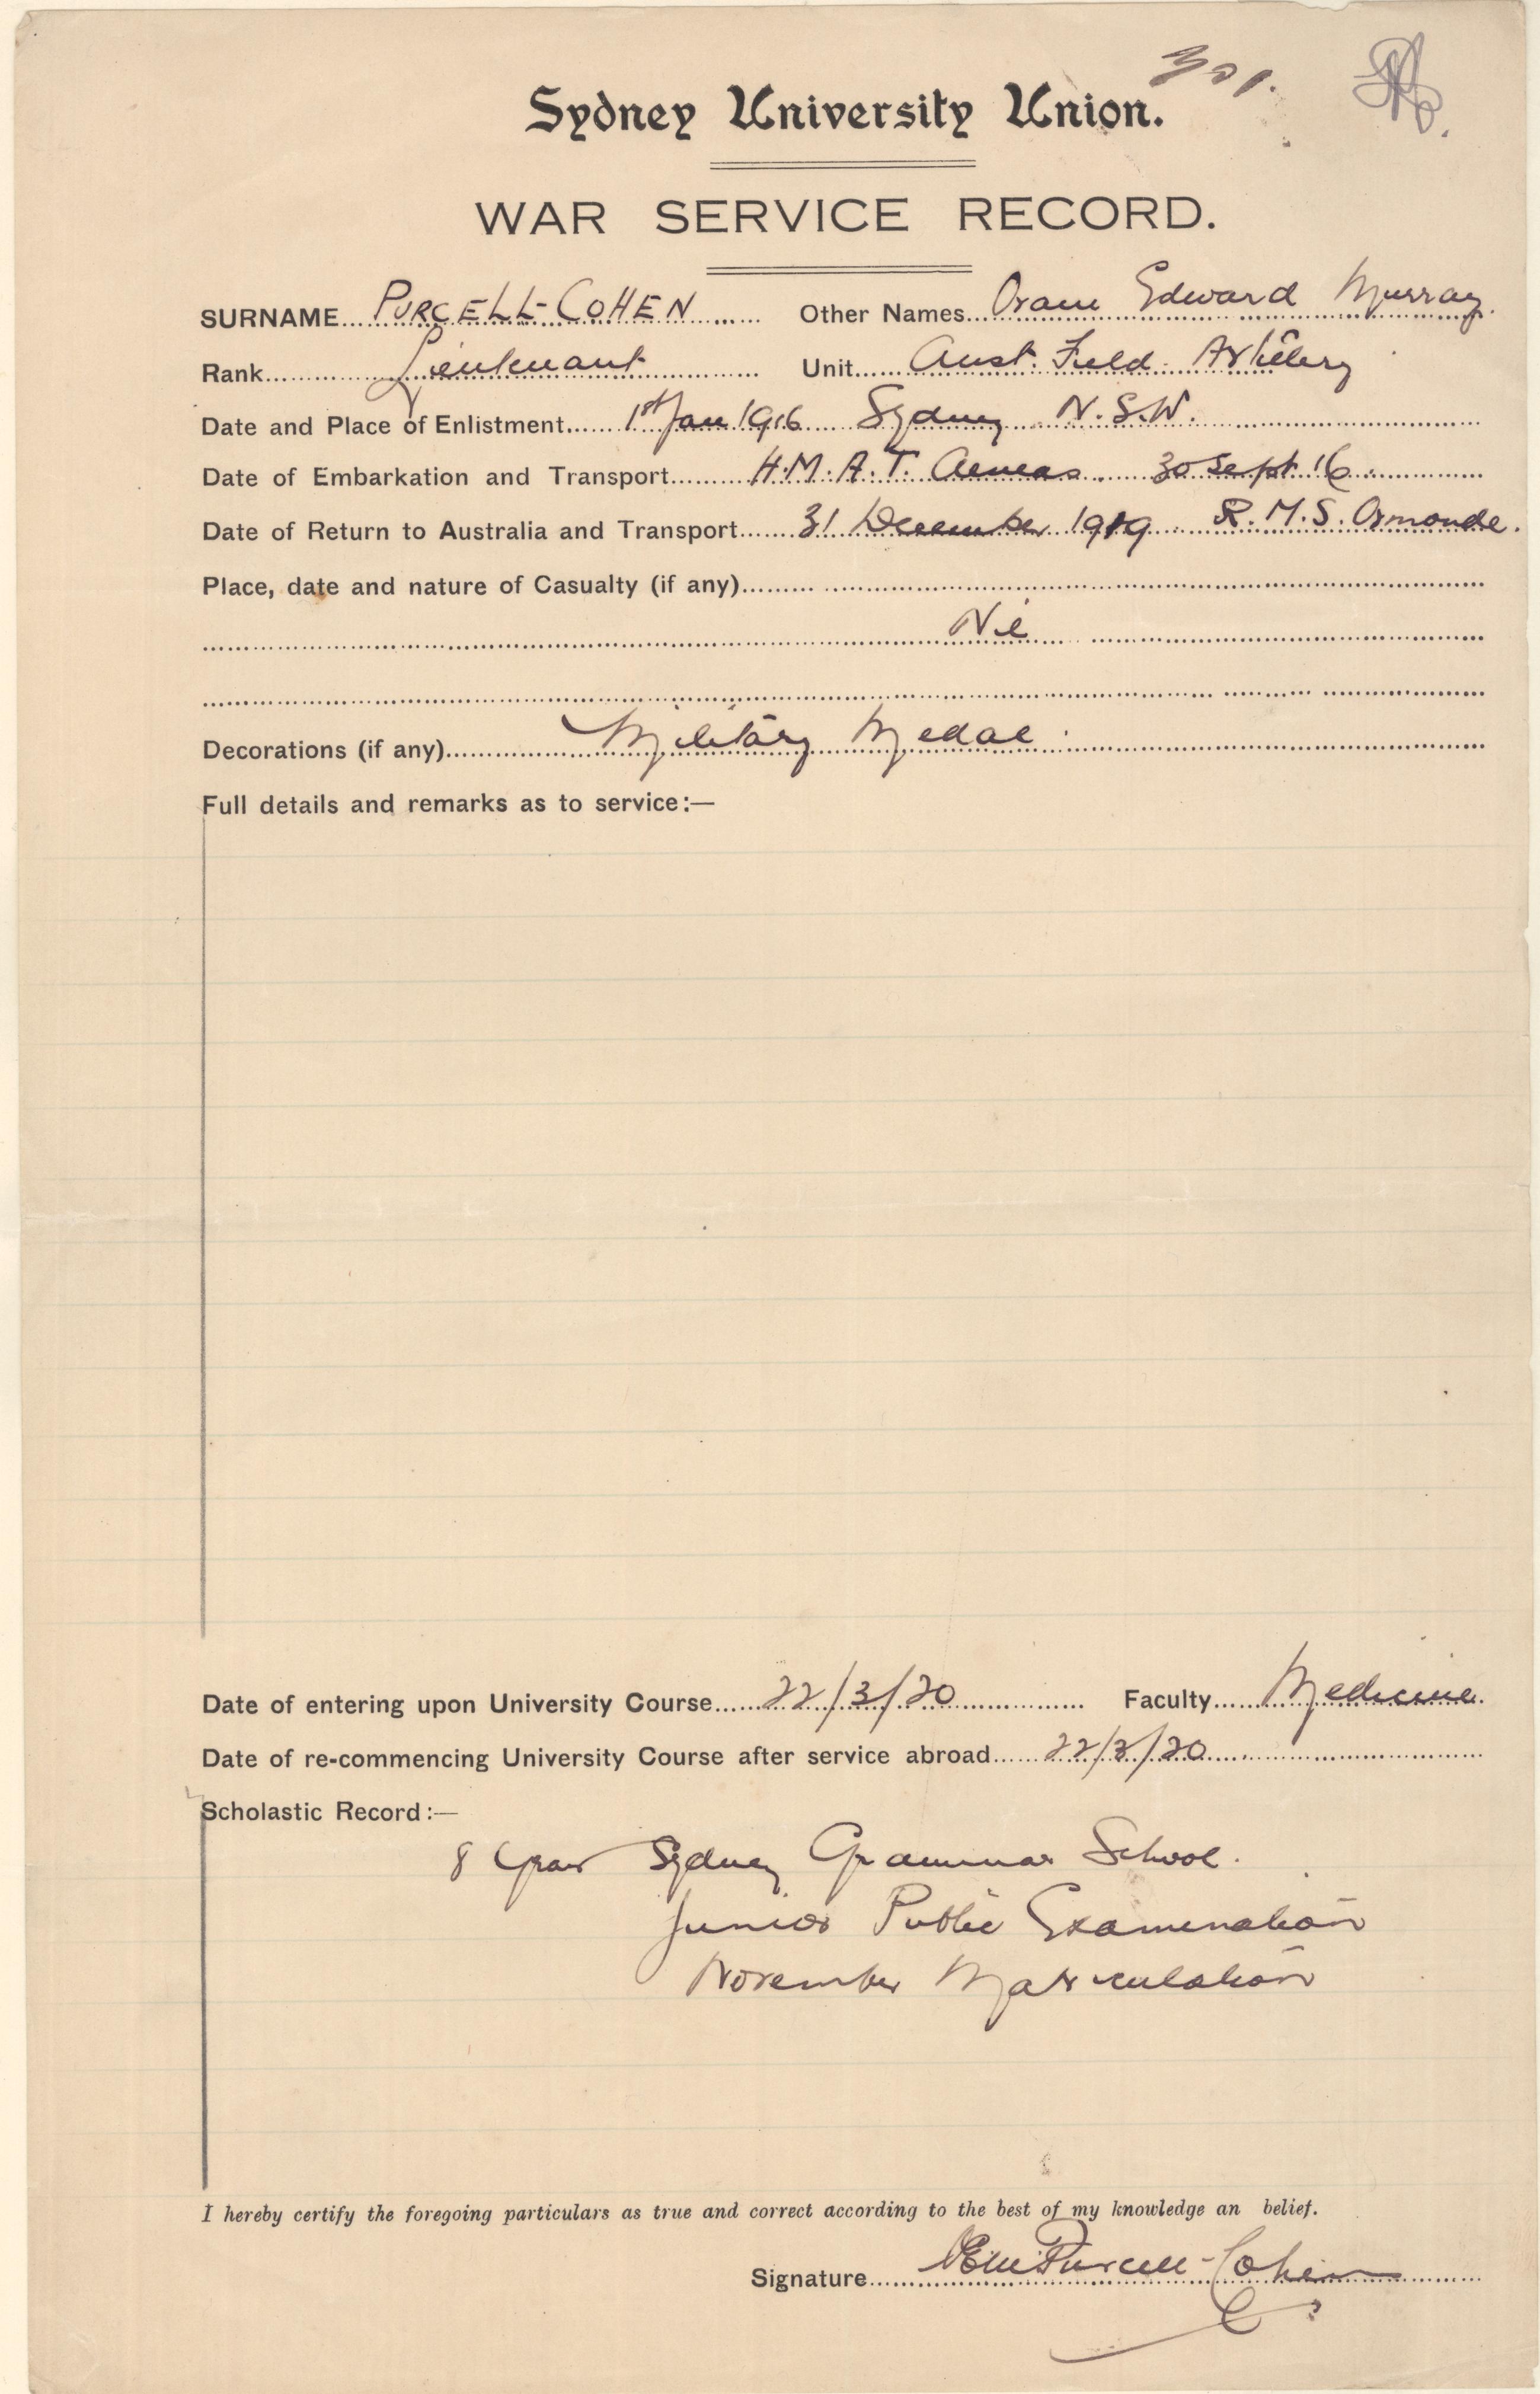 301.
Sydney University Union.
WAR SERVICE RECORD.
SURNAME PURCELL-COHEN Other Names Oram Edward Murray
Rank Lieutenant Unit Aust. Field Artillery
Date and Place of Enlistment 1st Jan 1916 Sydney N.S.W.
Date of Embarkation and Transport H.M.A.T. Aeneas. 30 Sept 16.
Date of Return to Australia and Transport 31 December 1919 R.M.S. Ormonde.
Place, date and nature of Casualty (if any)
Nil
Decorations (if any) Military Medal.
Full details and remarks as to service:—
Date of entering upon University Course 22/3/20 Faculty Medicine.
Date of re-commencing University Course after service abroad 22/3/20
Scholastic Record:—
8 years Sydney Grammar School.
Junior Public Examination
November Matriculation
I hereby certify the foregoing particulars as true and correct according to the best of my knowledge an belief.
Signature OEM Purcell-Cohen